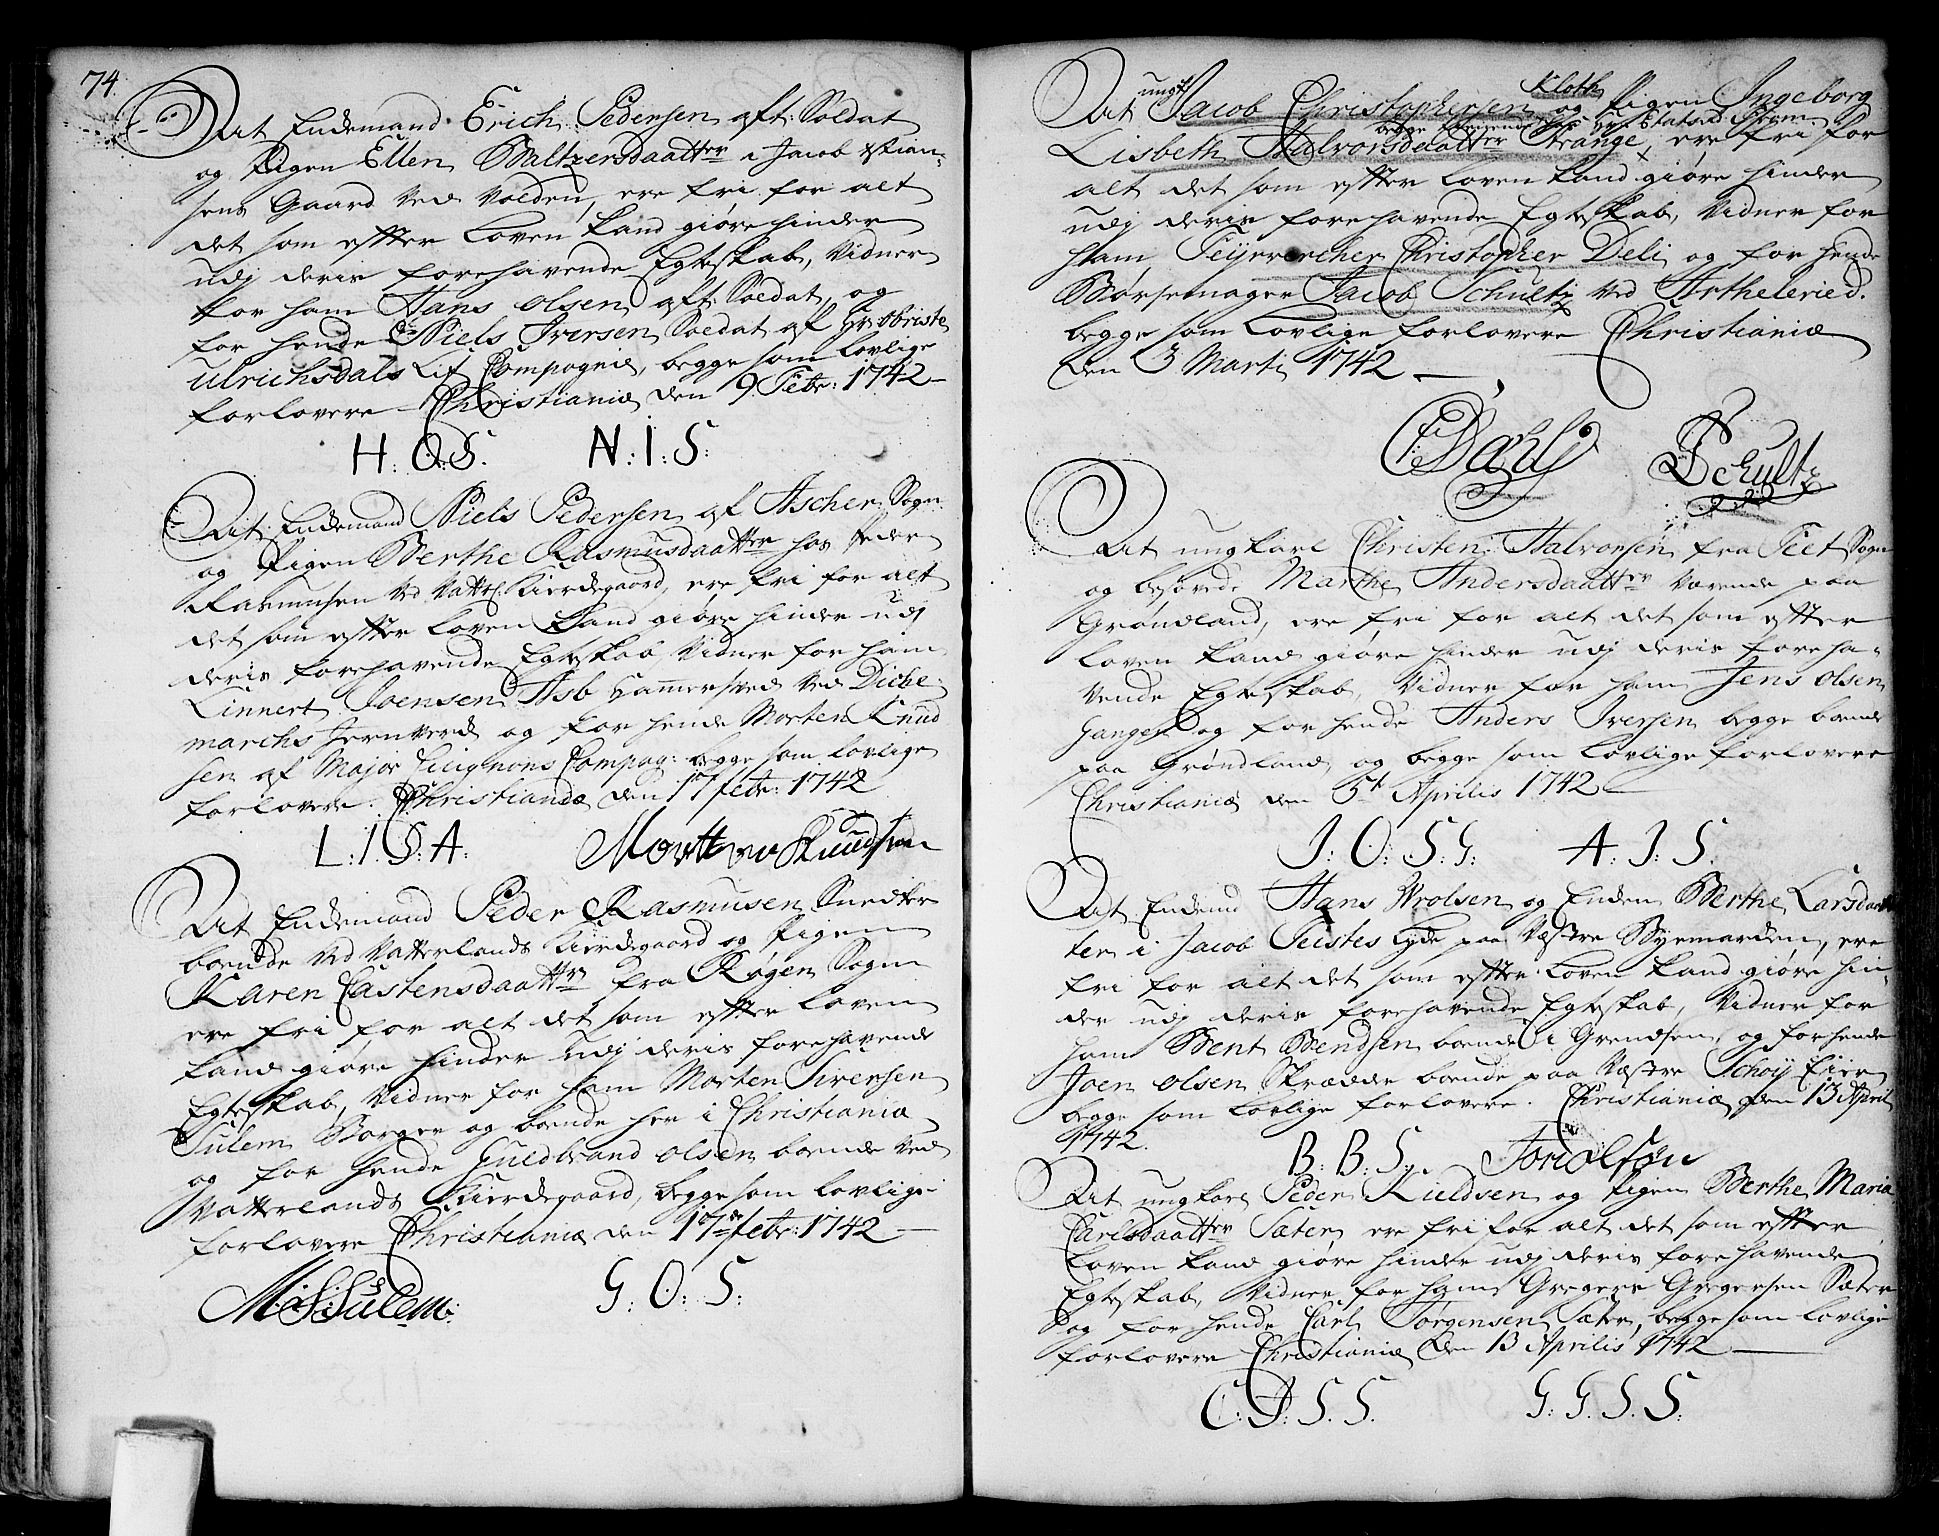 74.
At Enckemand Erich Pedersen aft: Soldat
og Pigen Ellen Baltzersdaatter i Jacob Stian-
sens Gaard ved Volden, ere fri for alt
det som effter Loven kand giøre hinder
udj deris forehavende Egteskab, Vidner
for ham Hans Olsen aft: Soldat, og
for hende Niels Iversen Soldat af Hr Obriste
Ulrichsdals Lif Compagnie, begge som lovlige
forlovere Christianiæ den 9 Febr: 1742
H: O: S. N: I: S:
At Enckemand Niels Pedersen af Ascher Sogn
og Pigen Berthe Rasmusdaatter hos Peder
Rasmusen ved Vatterl: Kierdegaard, ere fri for alt
det som effter Loven kand giøre hinder udj
deris forehavende Egteskab, Vidner for ham
Linnert Joensen Asb Hammersmed ved Diche-
marchs Jernverck og for hende Morten Knud
sen af Major Compag: begge som lovlige
forlovere. Christianiæ den 17 febr: 1742
L: I: S: A. Mortten Knudsen
At Enckemand Peder Rasmusen Snedker
boende ved Vatterlands Kierdegaard og Pigen
Karen Castensdaatter fra Røgen Sogn
ere fri for alt det som effter Loven
kand giøre hinder udj deris forehavende
Egteskab, Vidner for ham Morten Siversen
Sulem Borger og boende her i Christiania
og for hende Guldbrand Olsen boende ved
Vatterlands Kierdegaard, begge som lovlige
forlovere Christianiæ den 17de febr: 1742
M: S: Sulem: G: O: S:
At ungk Jacob Christophersen Kloth og Pigen Ingeborg
Lisbeth Halvorsdaatter Strange, ere fri for
begge Hr Etatsrd
alt det som effter Loven kand giøre hinder
udj deris forehavende Egteskab, Vidner for
ham Christopher Deli og for hende
Børsemager Jacob Schultz ved Artheleried.
begge som Lovlige forlovere Christianiæ
den 3 Marti 1742
CDahlj Schultz
At ungkarl Christen Halvorsen fra Feet Sogn
og besovede Marthe Andersdaatter værende paa
Grønland, ere fri for alt det som effter
Loven kand giøre hinder udj deris foreha-
vende Egteskab, Vidner for ham Jens Olsen
Ganger og for hende Anders Iversen begge boende
paa Grønland og begge som Lovlige forlovere
Christianiæ den 5te Aprilis 1742
J: O: S: G: A: I: S:
At Enckemd Hans Wrolsen og Encken Berthe Larsdaat
ter i Jacob Feistes Lycke paa Vestre Byemarcken, ere
fri for alt det som effter Loven kand giøre hin-
der udj deris forehavende Egteskab, Vidner for
ham Bent Bendsen boende i Grendsen, og for hende
Joen Olsen Skrædder boende paa Vestre Eier
begge som Lovlige forlovere. Christianiæ den 13 April
1742.
B: B: S: Jon Olsen
At ungkarl Peder Kieldsen og Pigen Berthe Maria
Carlsdaatter Sæter ere fri for alt det som effter
Loven kand giøre hinder udj deris forehavende
Egteskab, Vidner for ham Gregers Gregersen Sæter
og for hende Carl Jørgensen Sæter, begge som lovlige
forlovere Christianiæ den 13 Aprilis 1742
C: J: S. S. G: G: S. S: